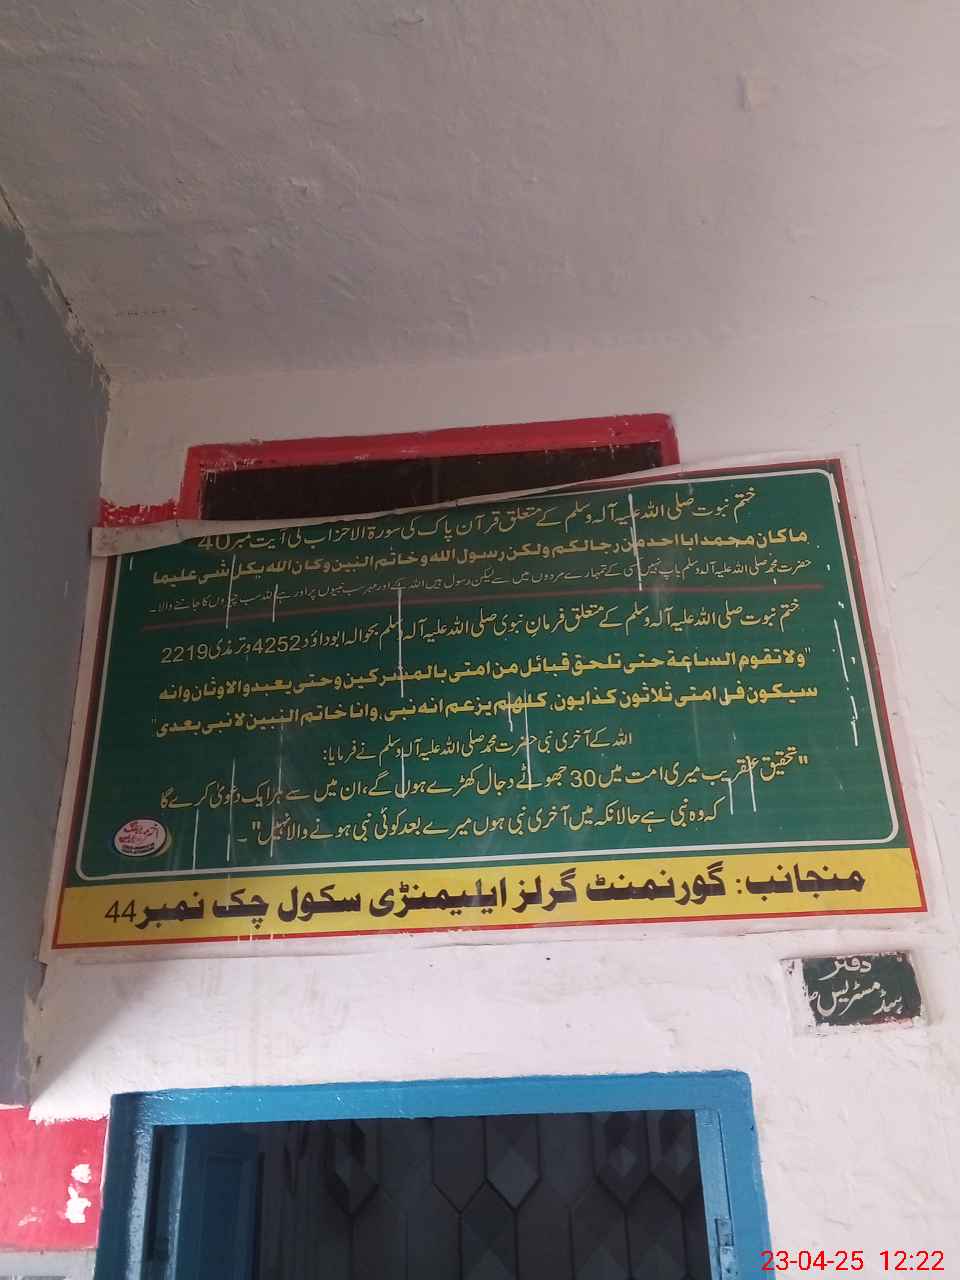 ختم نبوت صلی اللہ علیہ آلہ وسلم کے متعلق قرآن پاک کی سورۃ الاحزاب کی آیت نمبر 40
ماکان محمد ابا احد من رجالکم ولکن رسول الله وخاتم النبین وکان الله بکل شی علیما
حضرت محمد صلی اللہ علیہ آلہ وسلم باپ نہیں کسی کے تمہارے مردوں میں سے لیکن رسول ہیں اللہ کے اور مہر سب نبیوں پر اور ہے اللہ سب چیزوں کا جاننے والا۔
ختم نبوت صلی اللہ علیہ آلہ وسلم کے متعلق فرمان نبوی صلی اللہ علیہ آلہ وسلم بحوالہ ابوداؤد 4252 وترمذی 2219
"ولا تقوم الساعة حتى تلحق قبائل من امتی بالمشرکین وحتی یعبدو الاوثان وانه
سیکون فی امتی ثلاثون کذابون، کلهم یزعم انه نبی، وانا خاتم النبین لا نبی بعدی"
اللہ کے آخری نبی حضرت محمد صلی اللہ علیہ آلہ وسلم نے فرمایا:
"تحقیق عنقریب میری امت میں 30 جھوٹے دجال کھڑے ہوں گے، ان میں سے ہر ایک دعویٰ کرے گا
کہ وہ نبی ہے حالانکہ میں آخری نبی ہوں میرے بعد کوئی نبی ہونے والا نہیں"۔
منجانب: گورنمنٹ گرلز ایلیمنڑی سکول چک نمبر 44
دفتر
ہیڈ مسٹریس
23-04-25 12:22